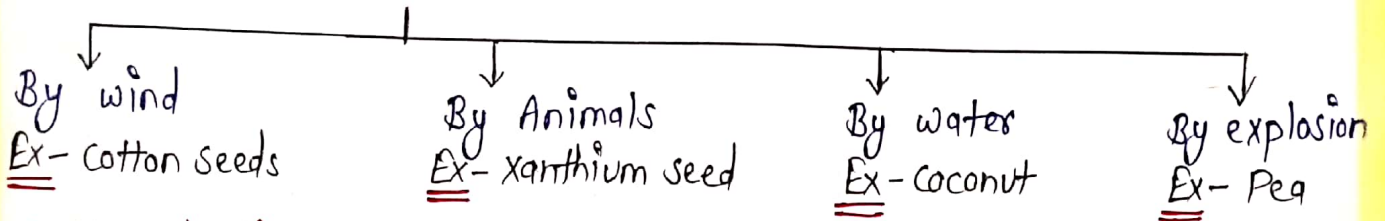 By wind
Ex- Cotton seeds
By Animals
Ex- Xanthium seed
By water
Ex- Coconut
By explosion
Ex- Pea